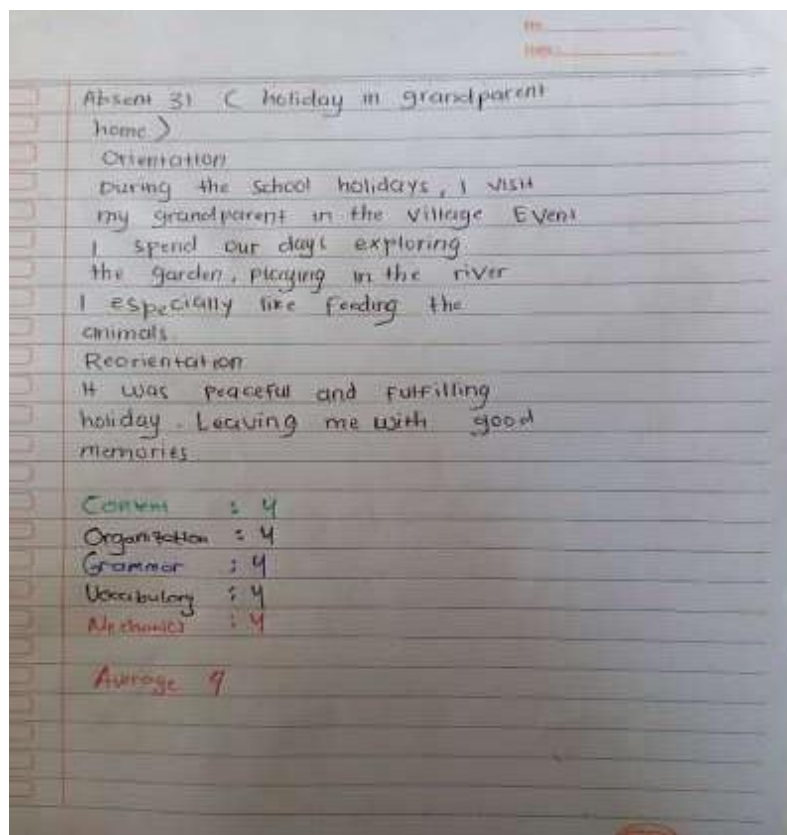 Absent 31 ( holiday in grandparent
home )
Orientation
During the school holidays, I visit
my grandparent in the village Event
I spend our days exploring
the garden, playing in the river
I especially like feeding the
animals.
Reorientation
It was peaceful and fulfilling
holiday. Leaving me with good
memories
Content : 4
Organization : 4
Grammar : 4
Vocabulary : 4
Mechanics : 4
Average 4